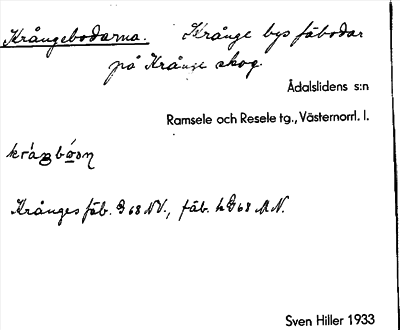 Krångebodarna. Krånge bys fäbodar
på Krånge skog.
Ådalslidens s:n
Ramsele och Resele tg., Västernorrl. l.
Krånges fäb. G 68 NV., fäb. h G 68 M N.
Sven Hiller 1933